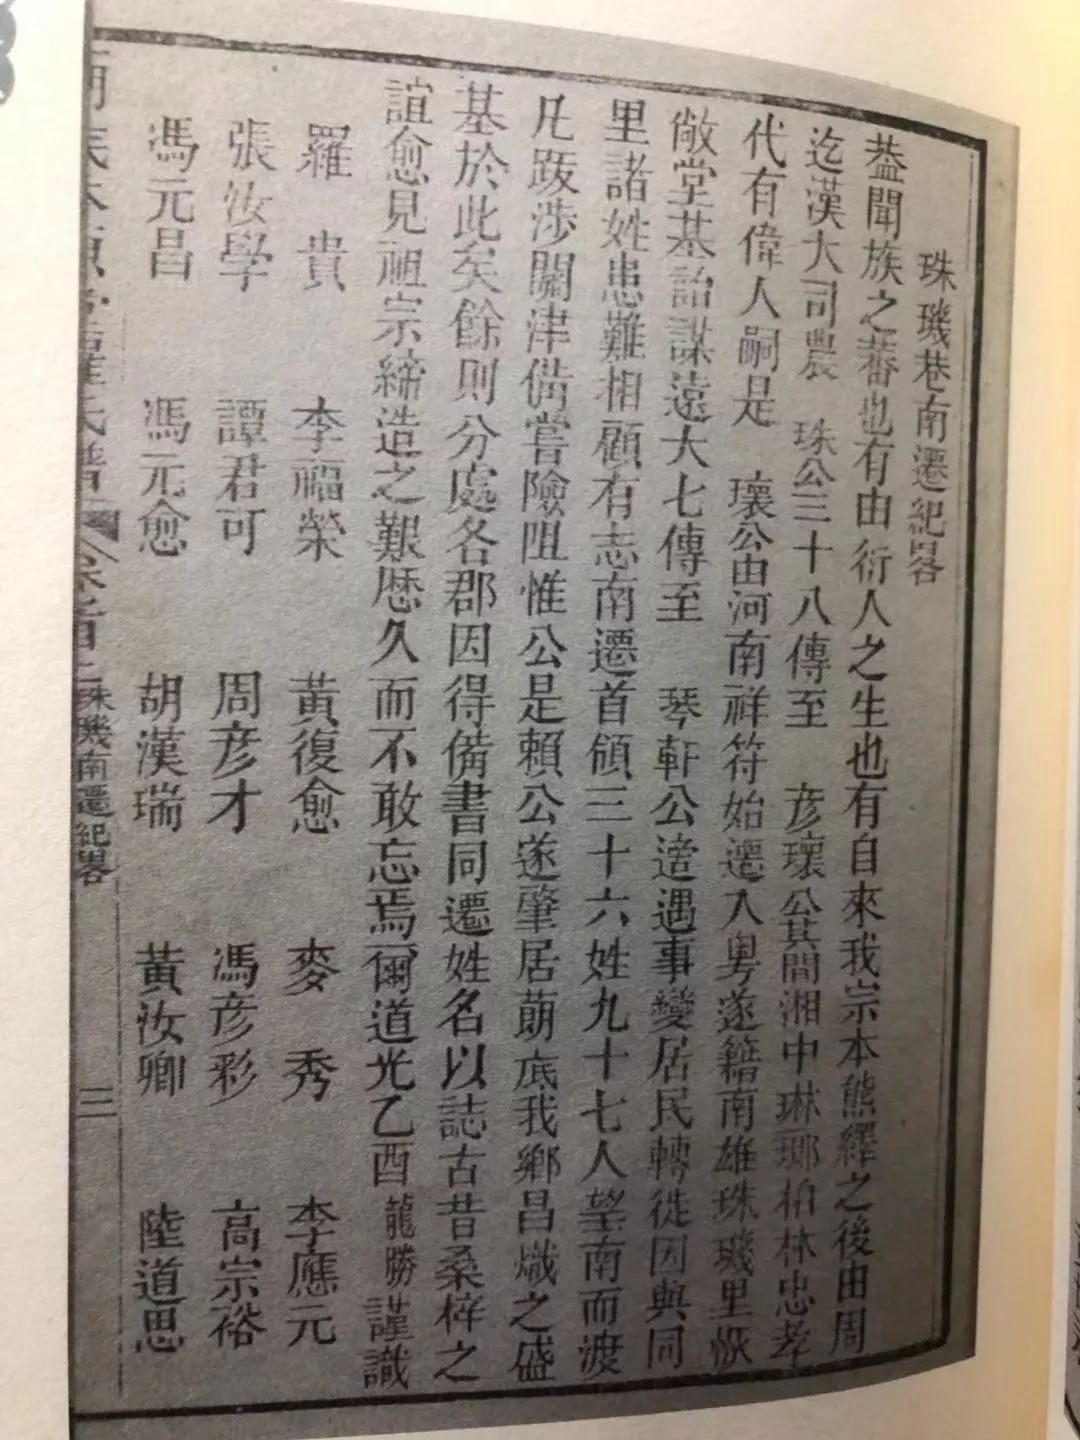 珠璣巷南遷紀畧
葢聞族之蕃也有由衍人之生也有自來我宗本熊繹之後由周
迄漢大司農 珠公三十八傳至 彦瓌公其間湘中琳瑯柏林忠孝
代有偉人嗣是 瓌公由河南祥符始遷入粤遂籍南雄珠璣里恢
敞堂基詒謀遠大七傳至 琴軒公遭遇事變居民轉徙因與同
里諸姓患難相顧有志南遷首領三十六姓九十七人望南而渡
凡跋涉關津備嘗險阻惟公是賴公遂肇居蓢底我鄉昌熾之盛
基於此矣餘則分處各郡因得備書同遷姓名以誌古昔桑梓之
誼愈見祖宗締造之艱歷久而不敢忘焉爾道光乙酉龍勝謹識
羅 貴 李福榮 黃復愈 麥 秀 李應元
張汝學 譚君可 周彦才 馮彦彩 高宗裕
馮元昌 馮元愈 胡漢瑞 黃汝卿 陸道思
氏本原堂羅氏譜 卷首上 珠璣南遷紀畧 三